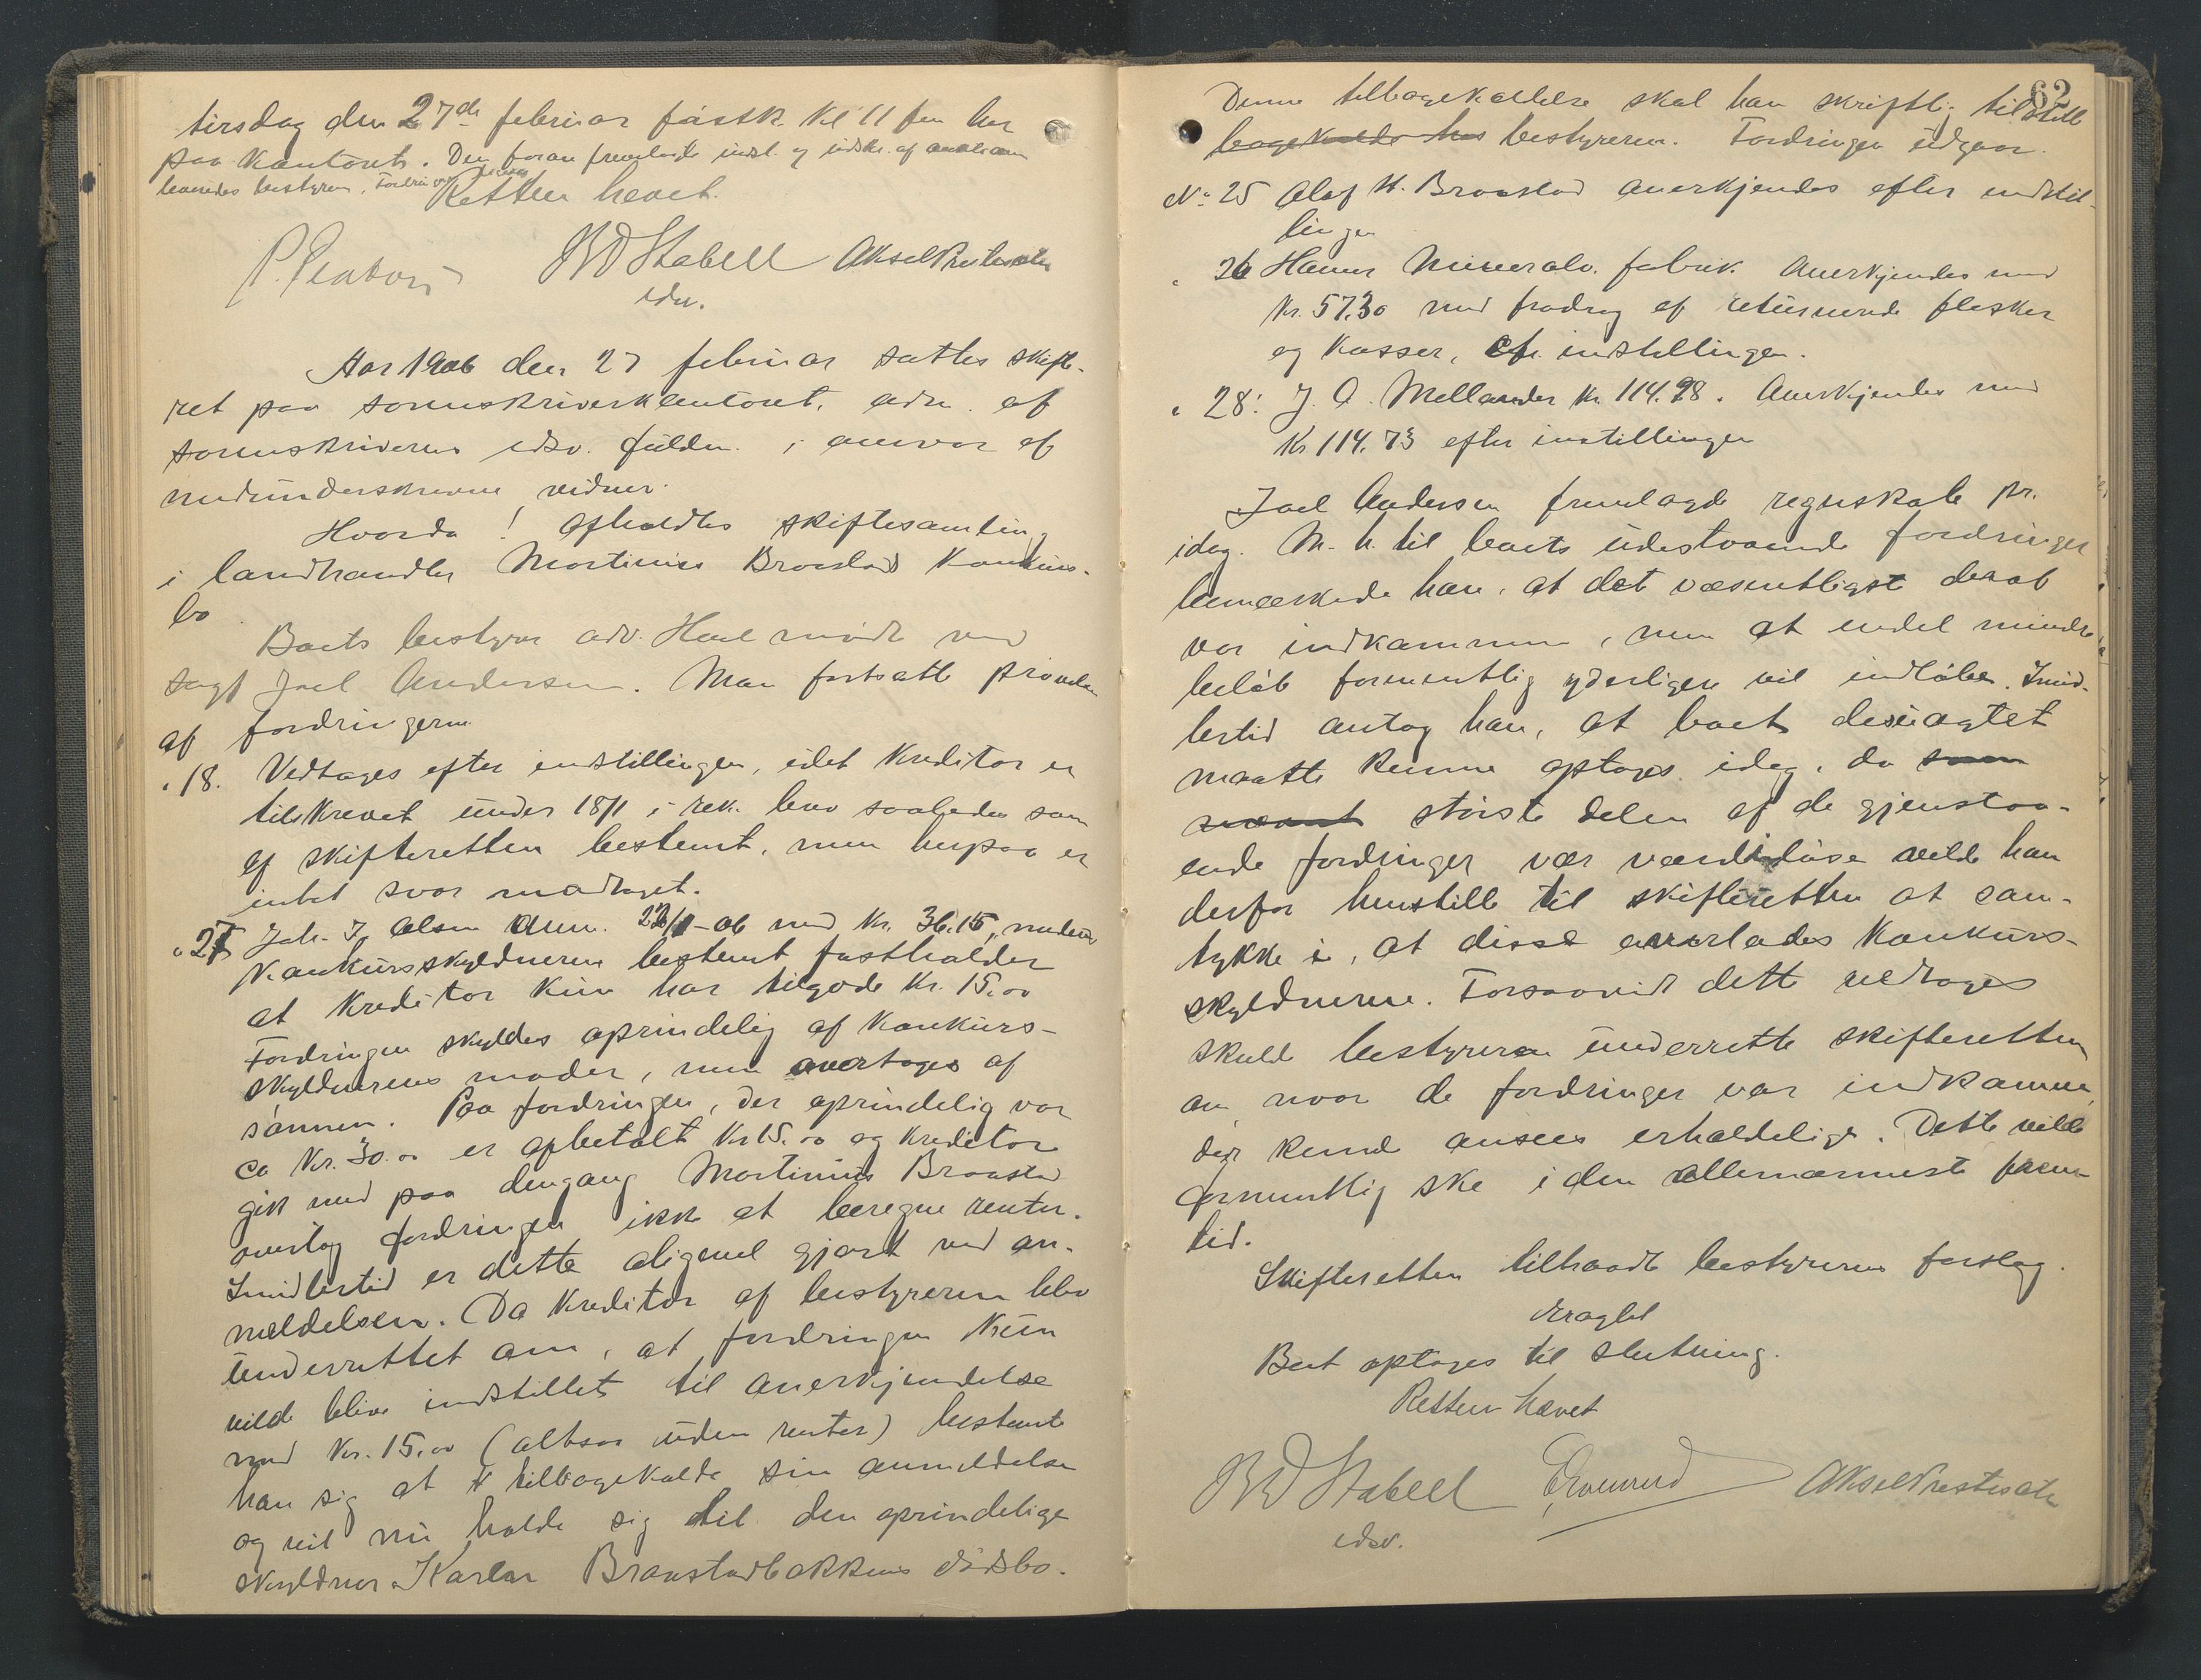 tirsdag den 27de februar førstk. kl 11 fm her
paa kontoret. Den foran fremlagte indst. og udskr. af
leveredes bestyreren. Fordringer
Retten hævet.
P. Pentson BD Stabell Aksel Prestesæter
edsv.
Aar 1906 den 27 februar sattes skift-
ret paa sorenskriverkontoret, adm. af
sorenskriverens edsv. fuldm. i nærvær af
medunderskrevne vidner.
Hvorda! Afholdtes skiftesamling
i landhandler Mortinius Braastads konkurs-
bo.
Boets bestyrer adv. Hoel mødte ved
sagf Joel Andersen. Man fortsatte prøvelsen
af fordringerne
" 18. Vedtages efter indstillingen, idet kreditor er
tilskrevet under 18/1 i rek. brev saaledes som
af skifteretten bestemt, men herpaa er
intet svar modtaget.
" 27 Joh. J. Olsen anm. 22/1-06 med kr. 36.15, medens
konkursskyldneren bestemt fastholder
at kreditor kun har tilgode kr. 15.00
Fordringen skyldes oprindelig af konkurs-
skyldnerens moder, men overtages af
sønnen. Paa fordringen, der oprindelig var
ca kr. 30.00 er afbetalt kr 15.00 og kreditor
gik med paa dengang Mortinius Braastad
overtog fordringen ikke at beregne renter.
Imidlertid er dette aligevel gjort ved an-
meldelsen. Da kreditor af bestyreren blev
underrettet om, at fordringen kun
vilde blive indstillet til anerkjendelse
med kr. 15.00 (altsaa uden renter) bestemte
han sig at tilbagekalde sin anmeldelse
og vil nu holde sig til den oprindelige
skyldner Karen Braastadbakkens dødsbo.
62
Denne tilbagekaldelse skal han skriftlig tilstille
bagekalde hos bestyreren. Fordringen udgaar.
No 25 Olaf H. Braastad anerkjendes efter indstil-
lingen
" 26 Hamar Mineralv. fabrik. Anerkjendes med
kr. 57.30 med fradrag af returnerede flasker
og kasser, cfr. indstillingen.
" 28: J. A. Mellander kr 114.98. Anerkjendes med
kr 114.73 efter instillingen
Joel Andersen fremlagde regnskab pr.
idag. M. h. til boets udestaaende fordringer
bemærkede han, at det væsentligste deraf
var indkommen, men at endel mindre
beløb formentlig yderligere vil indløbe. Imid-
lertid antog han, at boet desuagtet
maatte kunne optages idag, da som
nævnt største delen af de gjenstaa-
ende fordringer var værdiløse vilde han
derfor henstille til skifteretten at sam-
tykke i, at disse overlades konkurs-
skyldneren. Forsaavidt dette vedtages
skulde bestyreren underrette skifteretten
om naar de fordringer var indkomne,
der kunde ansees erholdelige. Dette vilde
formentlig ske i den allernærmeste frem-
tid.
Skifteretten tilraadte bestyrerens forslag.
eragtet
Boet optages til slutning.
Retten hævet
BD Stabell Aksel Prestesæter
edsv.